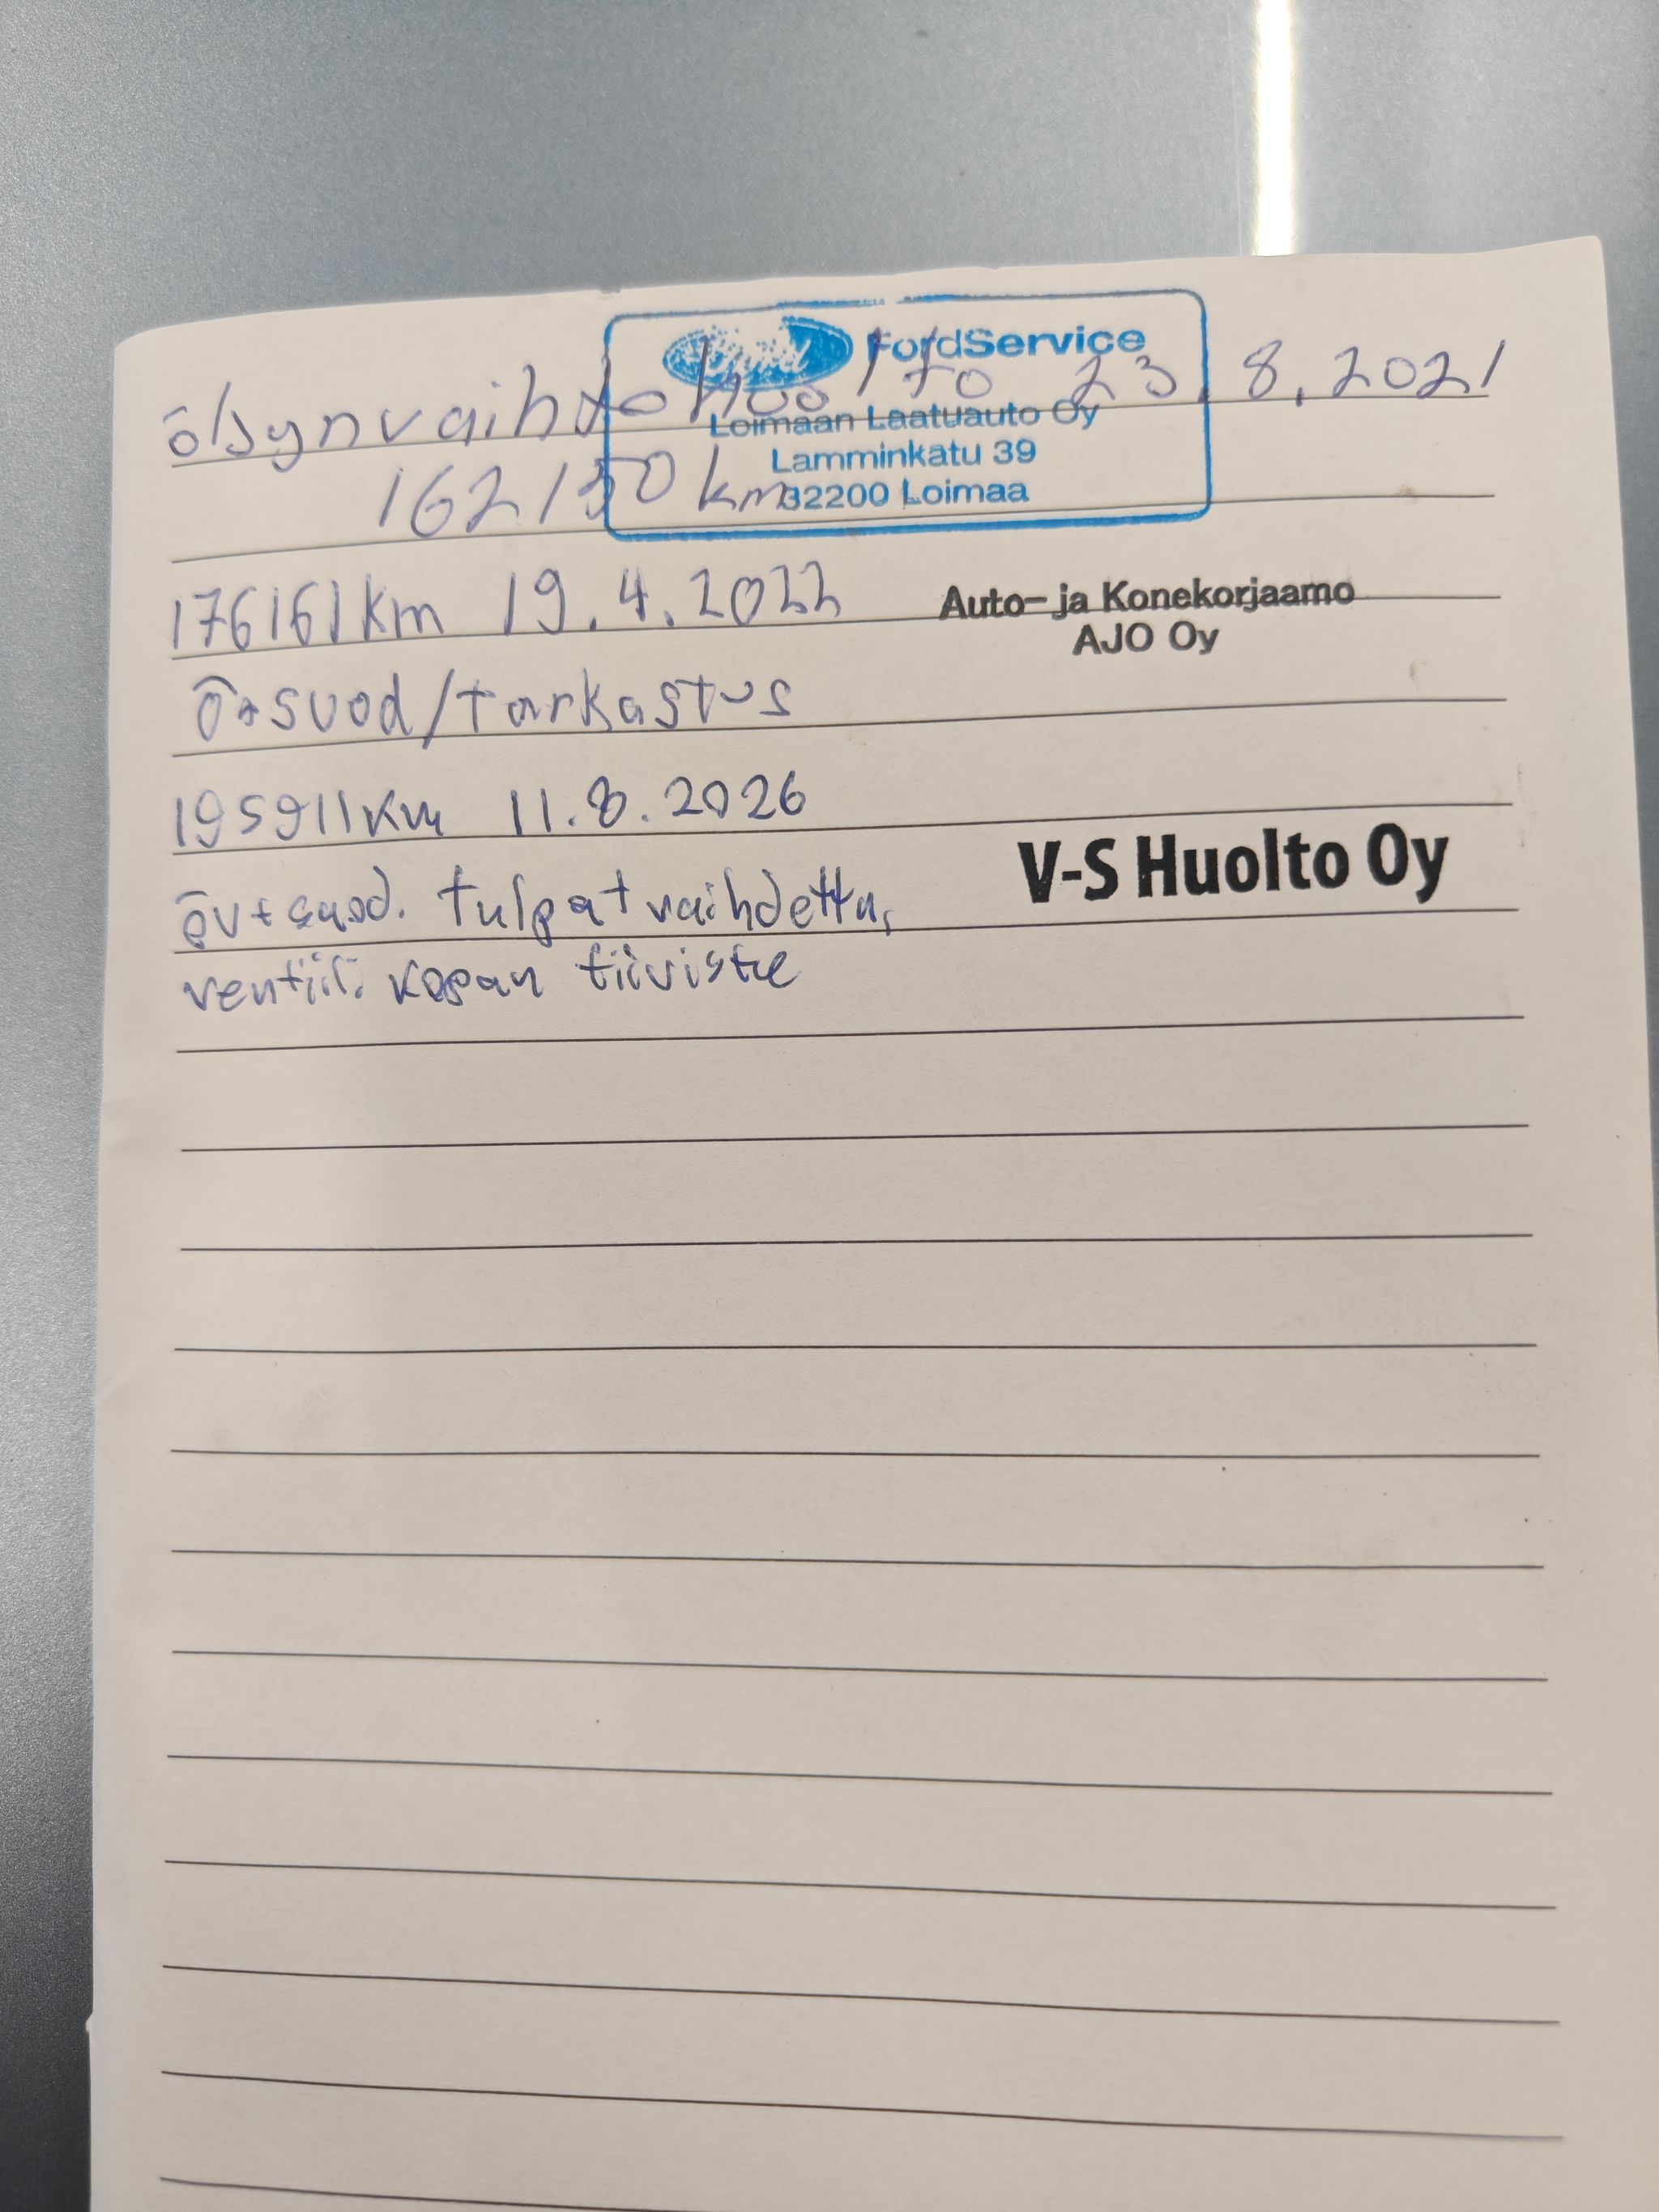 FordService
öljynvaihto 23.8.2021
Loimaan Laatuauto Oy
Lamminkatu 39
162130 km
32200 Loimaa
176161km 19.4.2022
Auto- ja Konekorjaamo
AJO Oy
ö+suod/tarkastus
195911km 11.8.2026
V-S Huolto Oy
öv+suod. tulpat vaihdettu,
ventiili kopan tiiviste